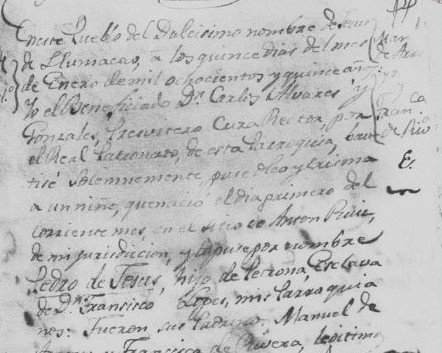 En este Pueblo del Dulcisimo nombre de Jesus
de Humacao, a los quince dias del mes
de Enero de mil ochocientos y quince años
Yo el Beneficiado Dn Carlos Alvares y
Gonzales, Presvitero Cura Rector, por
el Real Patronato, de esta Parroquia, bau
tisé solemnemente, puse oleo y Crisma
a un niño, que nacio el dia primero del
corriente mes, en el sitio de Anton Ruiz,
de mi jurisdiccion, y le puse por nombre
Pedro de Jesus, hijo de Petrona Esclava
de Dn Francisco Lopes, mis Parroquia
nos: fueron sus Padrinos, Manuel de
y Francisca de Rivera, legitimo
Man
de
Fran ca
de Riv
E.